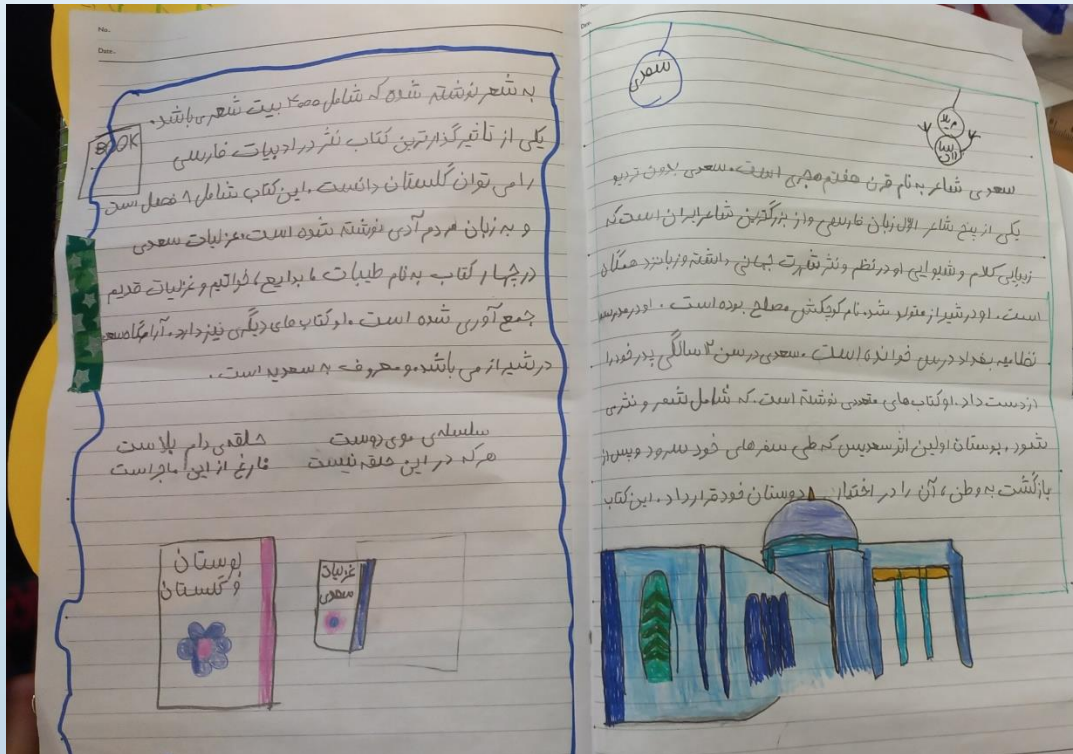 سعدی
سعدی شاعر به نام قرن هفتم هجری است. سعدی بدون تردید
یکی از پنج شاعر اول زبان فارسی و از بزرگترین شاعر ایران است که
زیبایی کلام و شیوایی او در نظم و نثر شهرت جهانی داشته و زبانزد همگان
است. او در شیراز متولد شد. نام کوچکش مصلح بوده است. او در مدرسه
نظامیه بغداد درس خوانده است. سعدی در سن ۱۲ سالگی پدر خود را
از دست داد. او کتاب های متعددی نوشته است. که شامل شعر و نثر می
شود. بوستان اولین اثر سعدیس که طی سفرهای خود سرود و پس از
بازگشت به وطن، آن را در اختیار دوستان خود قرار داد. این کتاب
No.
Date.
به شعر نوشته شده که شامل ۴۰۰۰ بیت شعر می باشد.
BOOK
یکی از تاثیر گذارترین کتاب نثر در ادبیات فارسی
را می توان گلستان دانست. این کتاب شامل ۸ فصل است
و به زبان مردم آدی نوشته شده است. غزلیات سعدی
در چهار کتاب به نام طیبات، بدایع، خواتیم و غزلیات قدیم
جمع آوری شده است. او کتاب های دیگری نیز دارد. آرامگاه سعدی
در شیراز می باشد. و معروف به سعدیه است.
سلسله‌ی موی دوست حلقه‌ی دام بلاست
هرکه در این حلقه نیست فارغ از این ماجراست
غزلیات
سعدی
بوستان
و گلستان